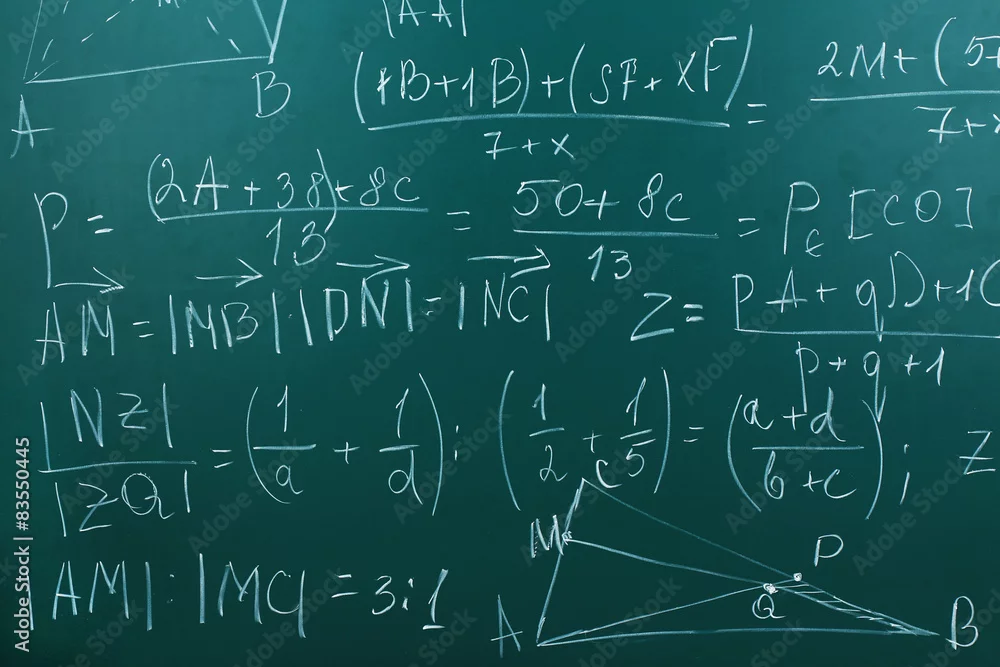 A B
|AA|
(1B+1B)+(5F+XF) / 7+x = 2M+(5 / 7+x
P = (2A+38)+8c / 13 = 50+8c / 13 = P_ϵ [CO]
AM = |MB|:|DN| = |NC| Z = pA+qD+1C / p+q+1
|NZ| / |ZQ| = (1/a + 1/d) : (1/2 + 1/5) = (a+d / b+c) ; Z
|AM|:|MC| = 3:1
C
M P
Q
A B
Adobe Stock | #83550445